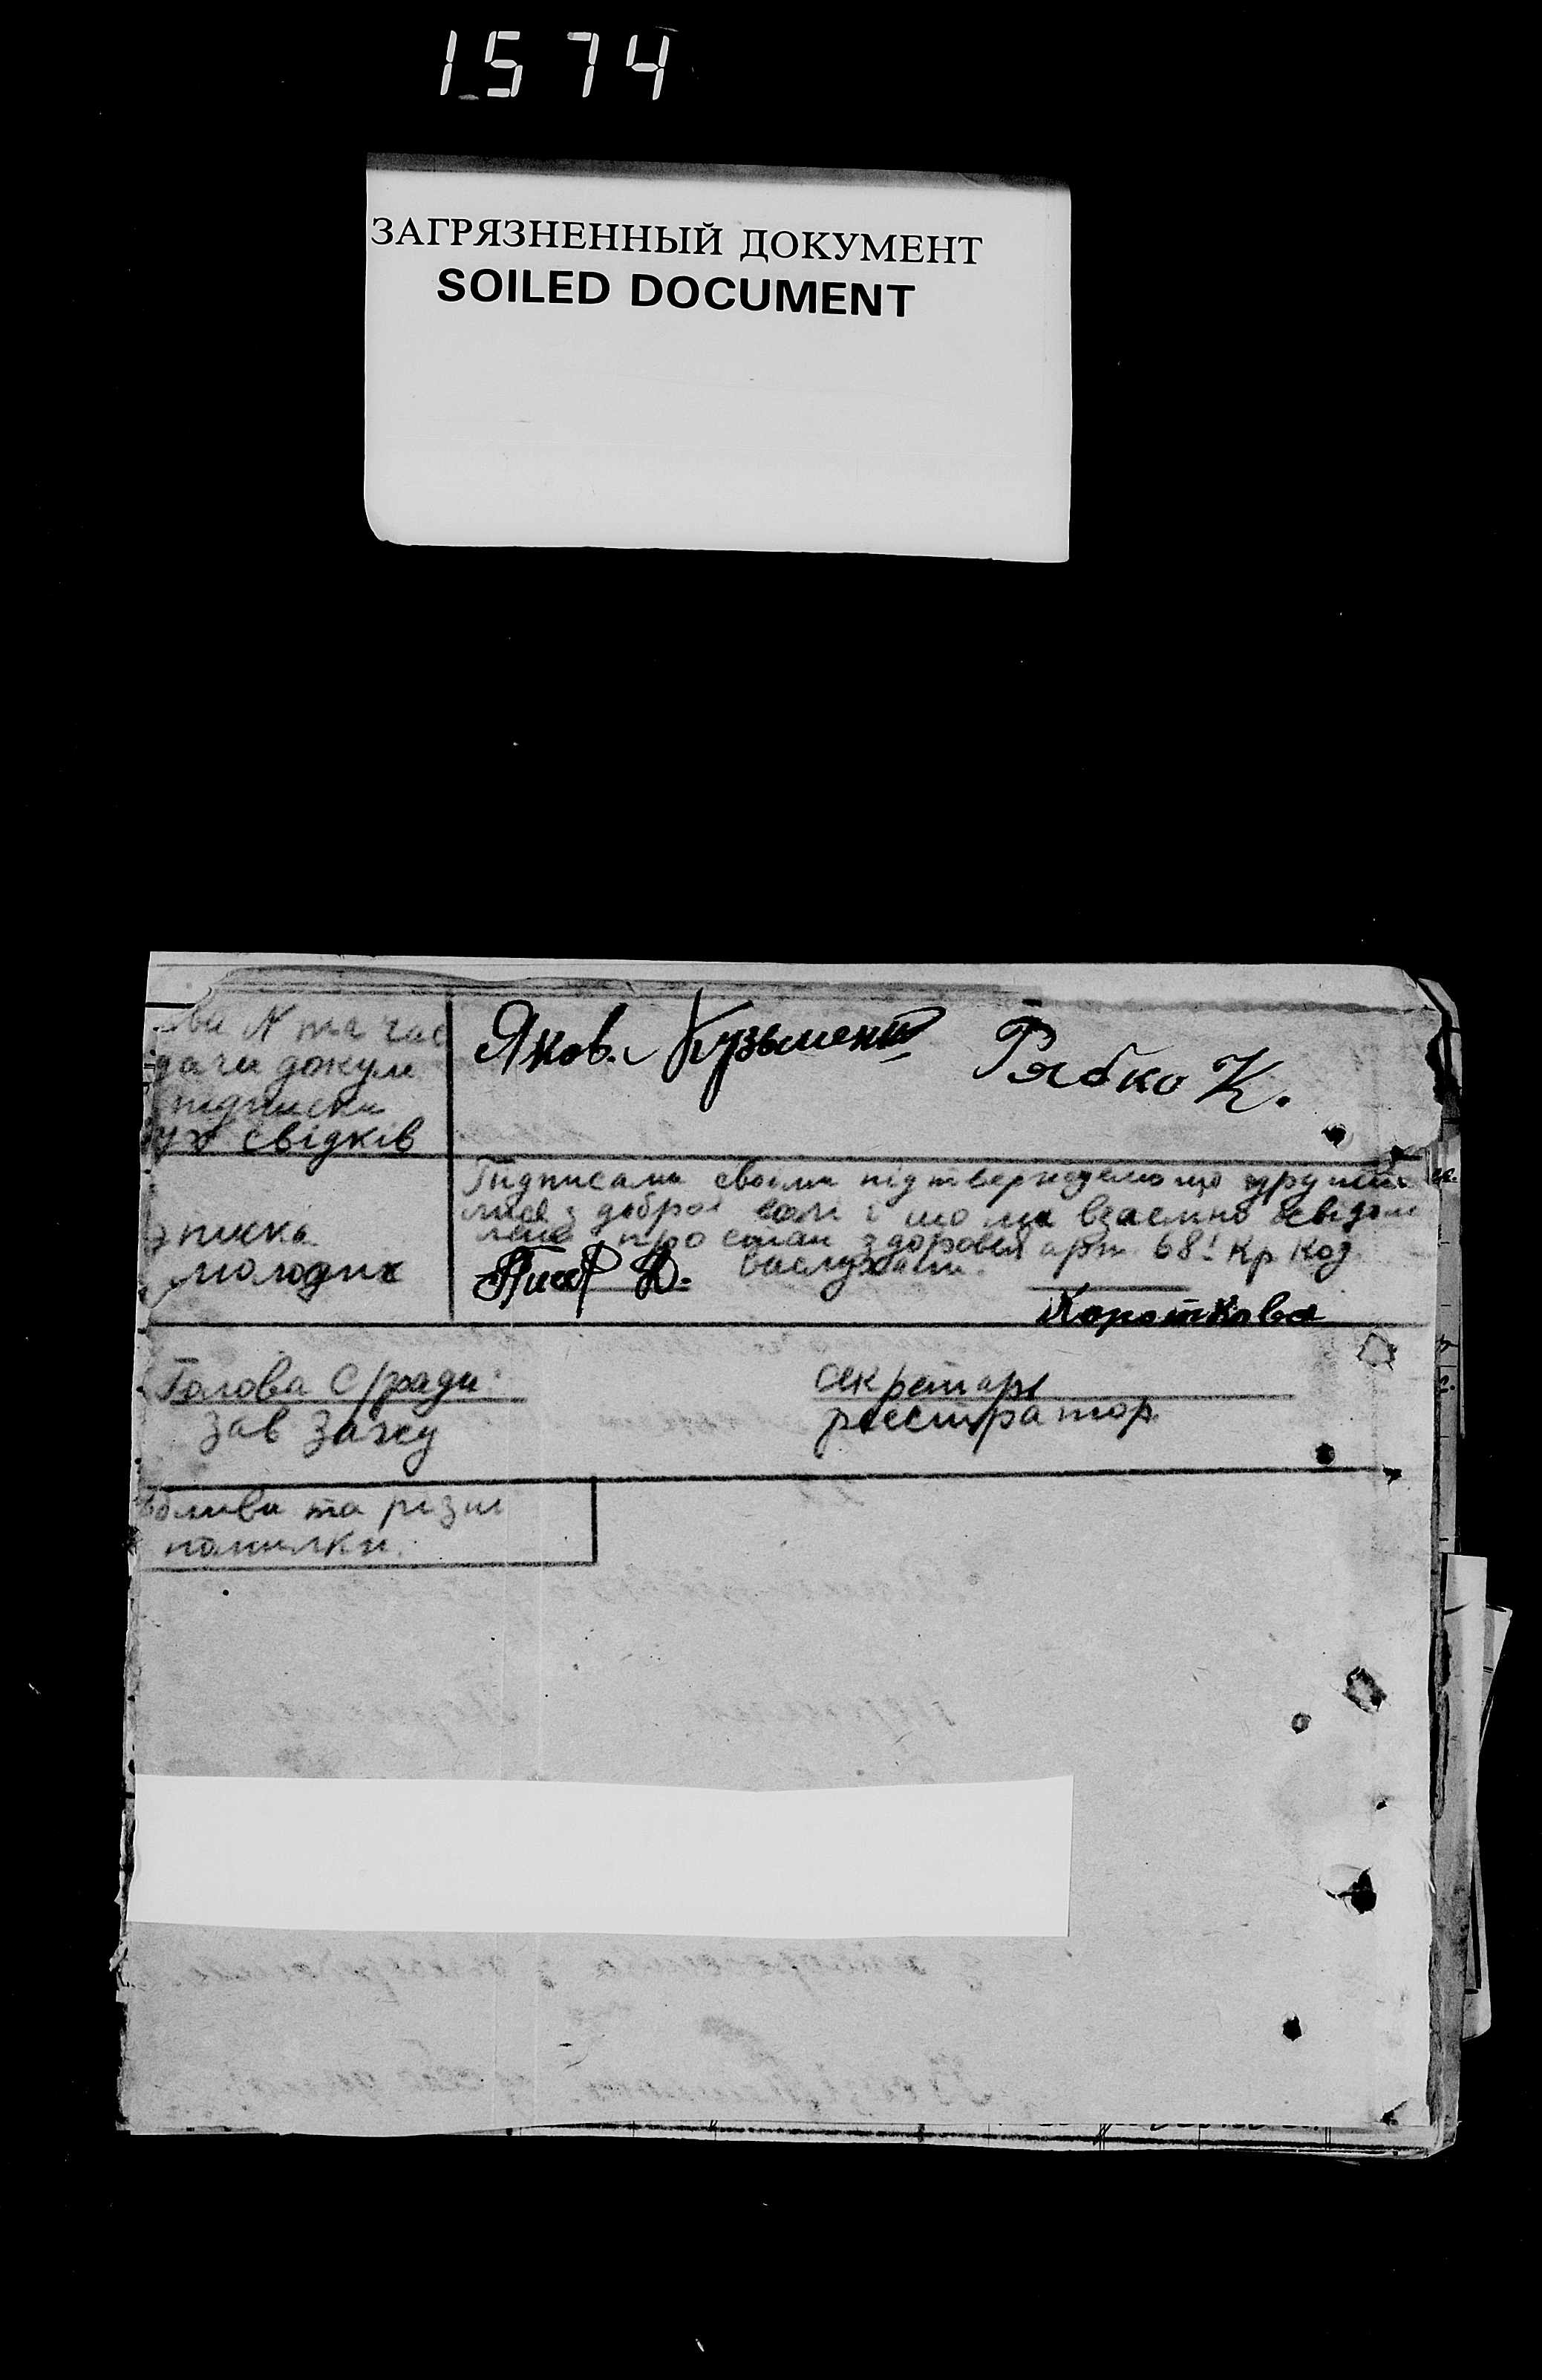 1574
ЗАГРЯЗНЕННЫЙ ДОКУМЕНТ
SOILED DOCUMENT
ва N та час
дачи докум
підписки
ух свідків
Яков. Кузьменко
Рябко К.
Підписами своїми підтверждуємо що
з доброї волі і що ми взаємно освідом
лені про стан здоровья арт. 68! Кр Код
вислухали.
писка
молодих
Короткова
Голова С/ради
зав Загсу
секретарь
реєстратор
ливи та різні
помилки.